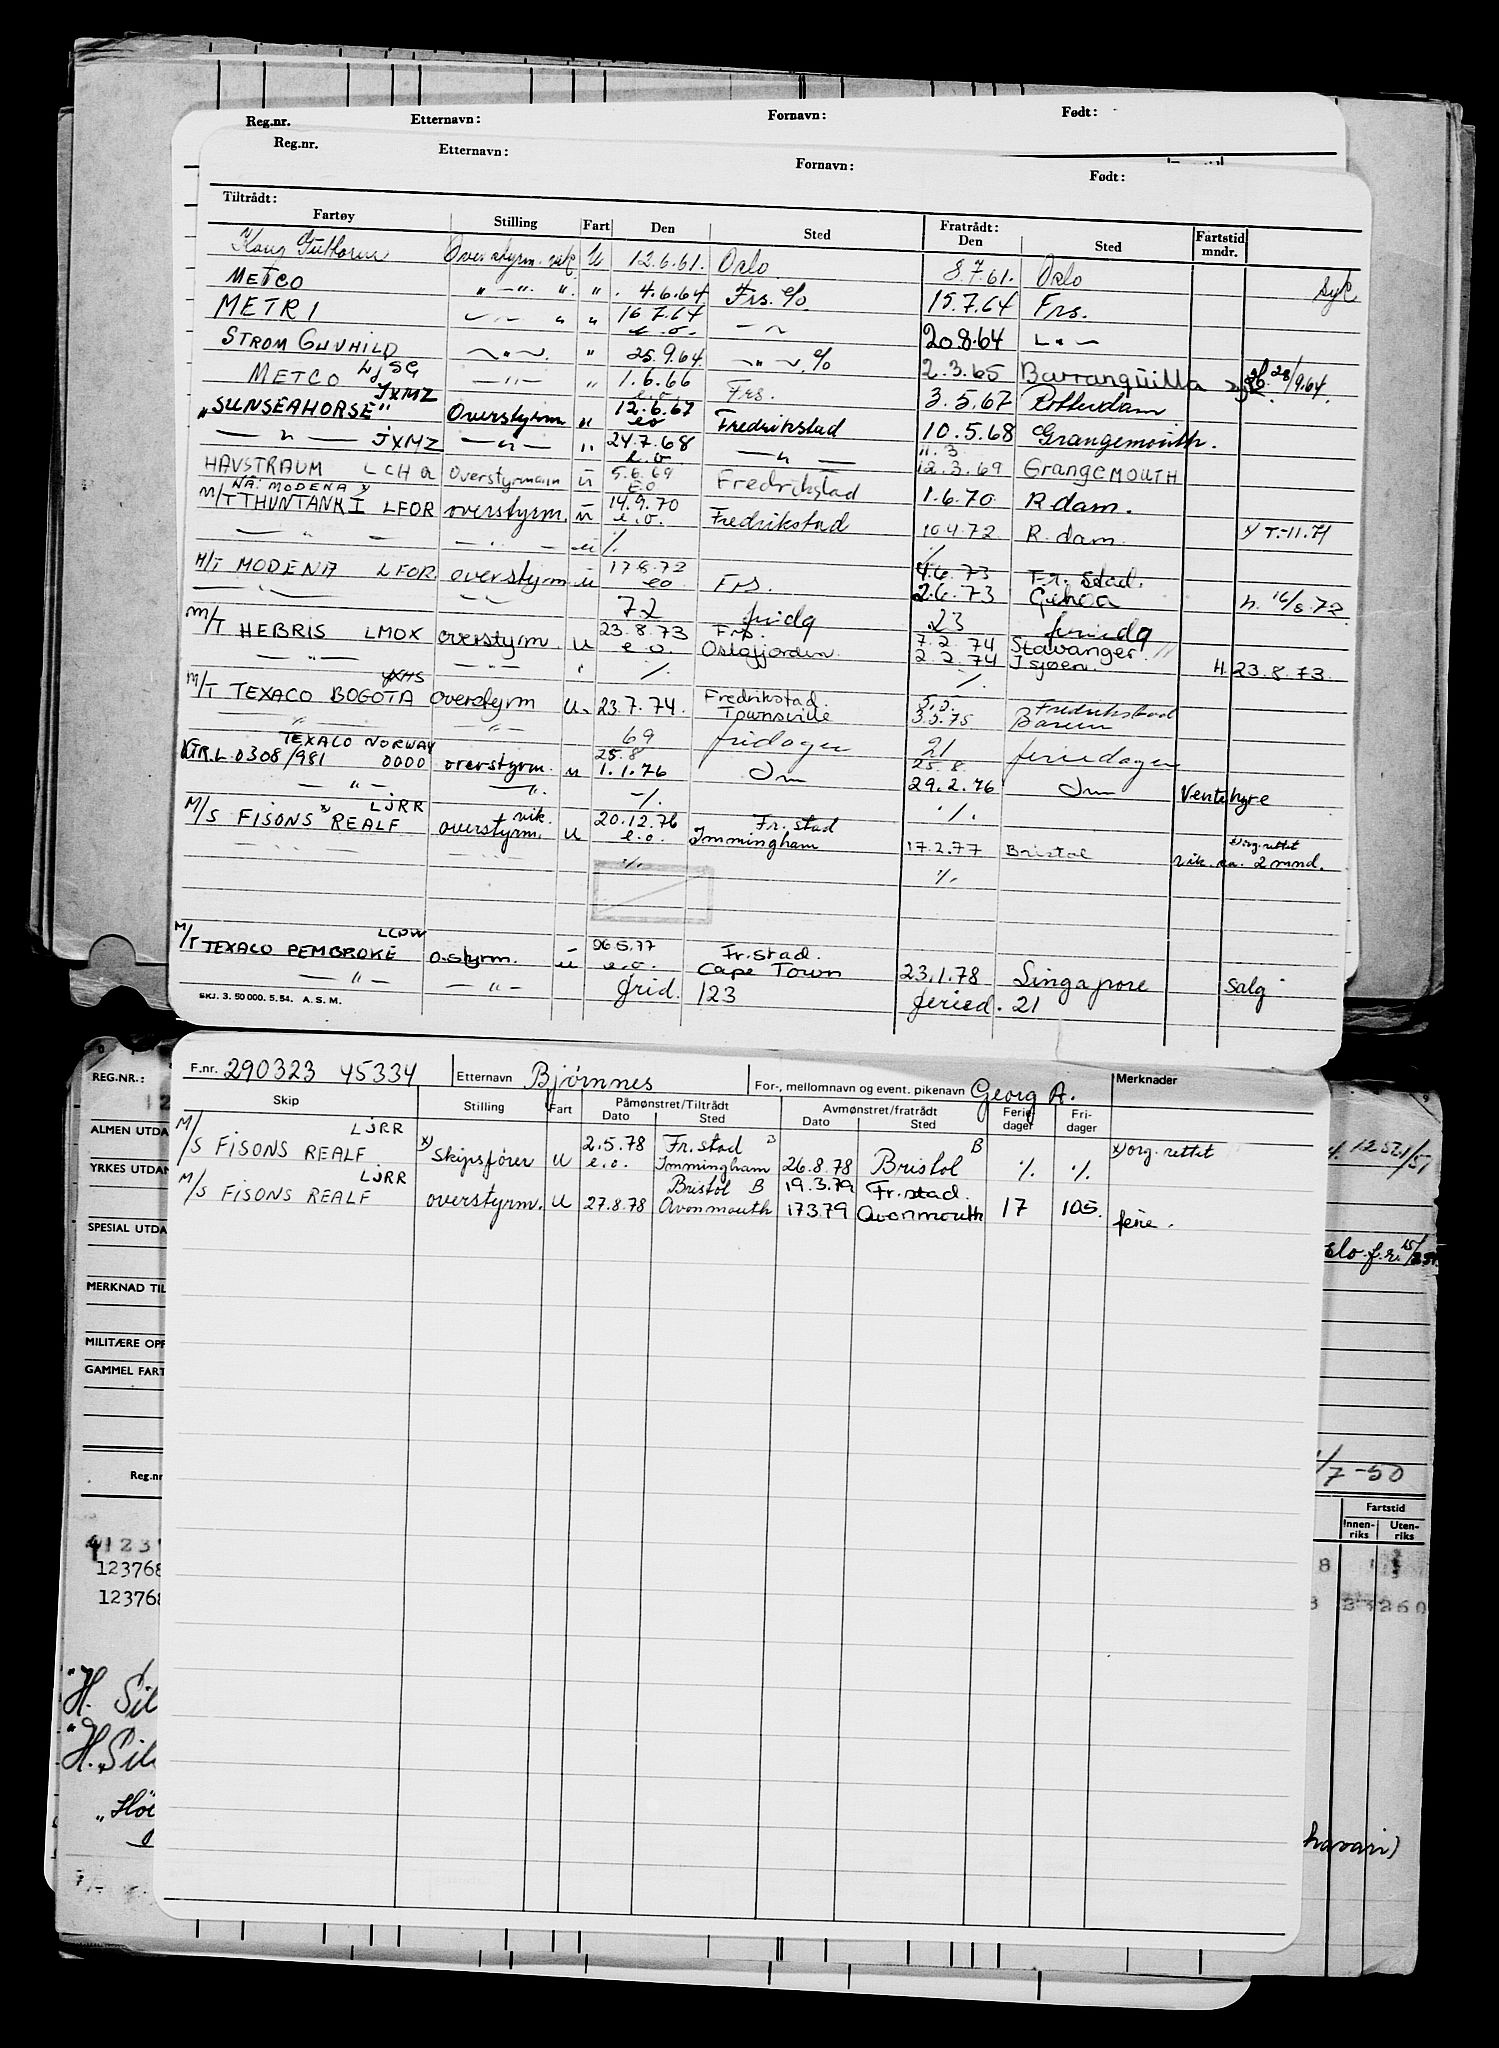 Reg.nr. Etternavn: Fornavn: Født:
Reg.nr. Etternavn: Fornavn: Født:
Tiltrådt: Fratrådt: Fartstid
Fartøy Stilling Fart Den Sted Den Sted mndr.
Kong Guthorm Overstyrm. vik U 12.6.61. Oslo 8.7.61. Oslo syk
METCO " —". ". ". 4.6.64 Frs. e/o. 15.7.64 Frs.
METRI " " 16.7.64 e.o. 20.8.64
STROM GUNHILD " 25.9.64 e/o 2.3.65 Barranquilla 28/9.64.
METCO LJSG —"— " 1.6.66 e.o Frs. 3.5.67 Rotterdam
"SUNSEAHORSE" JXMZ Overstyrm " 12.6.67 eo Fredrikstad 10.5.68 Grangemouth.
— " — JXMZ —"— " 24.7.68 e.o — " — 11.3. 12.3.69 GRANGEMOUTH
HAVSTRAUM LCHQ Overstyrmann u 5.6.69 E.O Fredrikstad 1.6.70 R.dam.
NÅ: MODENA x)
M/T THUNTANK I LFOR overstyrm. u 14.9.70 e.o. Fredrikstad 10.4.72 R.dam x) T.-11.71
— " — — " — u ./. ./.
M/T MODENA LFOR overstyrm u 17.8.72 eo Frs. 4.6.73 Fr.stad.
2.6.73 Genoa h. 16/8.72
72 fridg 23 feriedg
M/T HEBRIS LMOX overstyrm. u 23.8.73 Frs. 7.2.74 Stavanger
—"— —"— e.o. Oslofjorden 2.2.74 I sjøen H. 23.8.73.
./. ./.
M/T TEXACO BOGOTA overstyrm u. 23.7.74. Fredrikstad. 5.5. Fredrikstad
" —"— Townsville 3.5.75
69 fridager 21 feriedager
TEXACO NORWAY 25.8 25.8.
KTR.L 0308/981 0000 overstyrm. u 1.1.76 29.2.76 Ventehyre
— " — —". ./. ./.
M/S FISONS x) REALF LJRR overstyrm. vik. u 20.12.76 Fr.stad x) org. rettet
e.o. Immingham 17.2.77 Bristol vik. ca. 2 mnd.
./. ./.
M/T TEXACO PEMBROKE LCDW o.styrm. u 06.5.77 Fr.stad.
— " — — " — e.o. Cape Town 23.1.78 Singapore salg
frid. 123 feried. 21
SKJ. 3. 50 000. 5. 54. A. S. M.
F.nr. 290323 45334 Etternavn Bjørnnes For-, mellomnavn og event. pikenavn Georg A. Merknader
Skip Stilling Fart Påmønstret/Tiltrådt Avmønstret/fratrådt Ferie- Fri-
Dato Sted Dato Sted dager dager
M/S FISONS REALF LJRR x) Skipsfører u 2.5.78 Fr.stad B x) org. rettet
e.o. Immingham 26.8.78 Bristol ./. ./.
M/S FISONS REALF LJRR Bristol B 19.3.79 Fr.stad.
overstyrm. u 27.8.78 Avonmouth 17.3.79 Avonmouth 17 105. ferie.
REG.NR.:
ALMEN UTDA
YRKES UTDAN
SPESIAL UTDA
MERKNAD TIL
MILITÆRE OPP
GAMMEL FART
Reg.nr
123768
123768
H. Sil
H. Sil
7-50
Fartstid
Innen- Uten-
riks riks
havari)